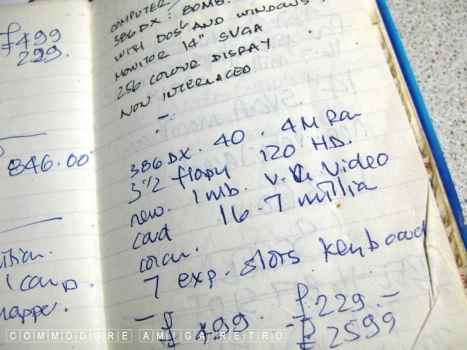 £499
299.
846.00
COMPUTER
386 DX : 80MB.
WITH DOS6 AND WINDOWS
MONITOR 14" SVGA
256 COLOUR DISPAY
NON INTERLACED
386 DX. 40. 4M Ram
3½ flopy 120 HD.
new. 1mb. Video
card 16.7 million
colour.
7 exp. slots keyboard
- £499. £229.-
- £2599
COMMODORE AMIGA RETRO